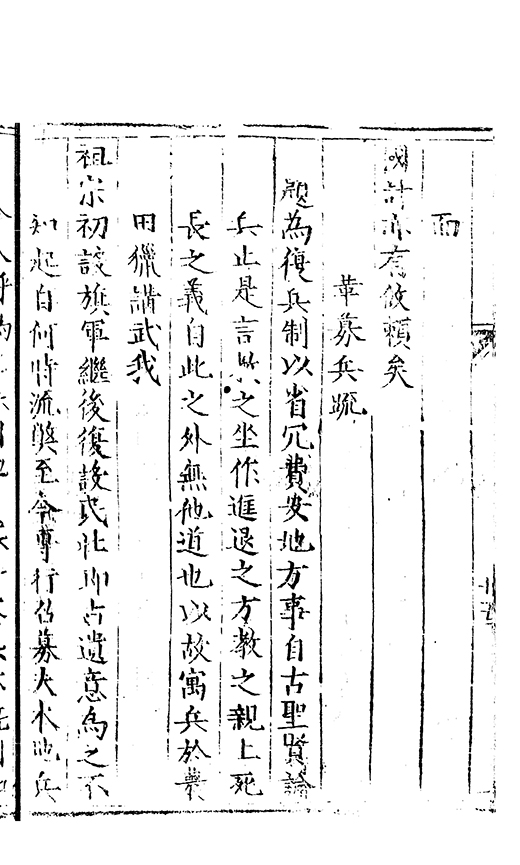 而
國計亦有攸賴矣
革募兵疏
題為復兵制以省冗費安地方事自古聖賢論
兵止是言與之坐作進退之方教之親上死
長之義自此之外無他道也以故寓兵於農
田獵講武我
祖宗初設旗軍繼後復設民壯即古遺意為之不
知起自何時流弊至今專行召募夫本地兵